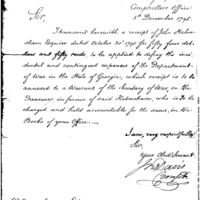 Comptrollers Office
5th December 1795.
Sir,
I transmit herewith a receipt of John Haber-
sham Esquire dated October 30th 1795 for fifty four dol-
lars and fifty cents, to be applied to defray the inci-
dental and contingent expenses of the Department
of War in the State of Georgia, which receipt is to be
annexed to a Warrant of the Secretary of War, on the
Treasurer, in favor of said Habersham, who is to be
charged and held accountable for the same, in the
Books of your Office.
I am, very respectfully
Sir,
Your Obedt Servant
Jno Davis
Comptr